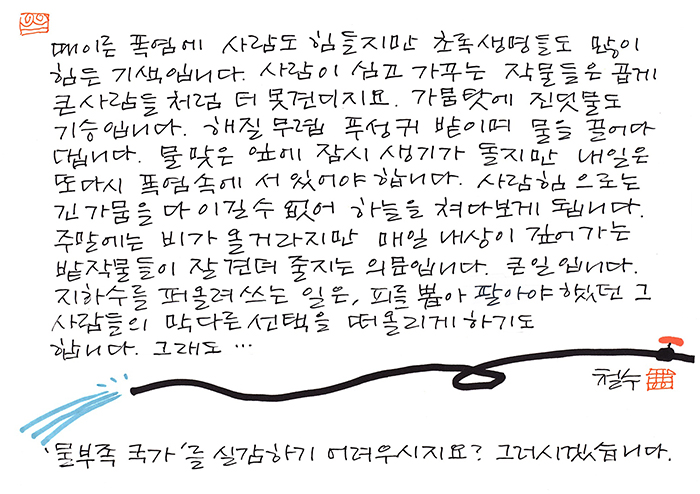 때이른 폭염에 사람도 힘들지만 초록생명들도 많이
힘든 기색입니다. 사람이 심고 가꾸는 작물들은 곱게
큰 사람들처럼 더 못견디지요. 가뭄탓에 진딧물도
기승입니다. 해질 무렵 푸성귀 밭이며 물을 끌어다
댑니다. 물 맞은 잎에 잠시 생기가 돌지만 내일은
또다시 폭염속에 서 있어야 합니다. 사람힘으로는
긴 가뭄을 다 이길 수 없어 하늘을 쳐다보게 됩니다.
주말에는 비가 올거라지만 매일 내상이 깊어가는
밭작물들이 잘 견뎌 줄지는 의문입니다. 큰일입니다.
지하수를 퍼올려 쓰는 일은, 피를 뽑아 팔아야 했던 그
사람들의 막다른 선택을 떠올리게 하기도
합니다. 그래도 …
철수
'물부족 국가'를 실감하기 어려우시지요? 그러시겠습니다.